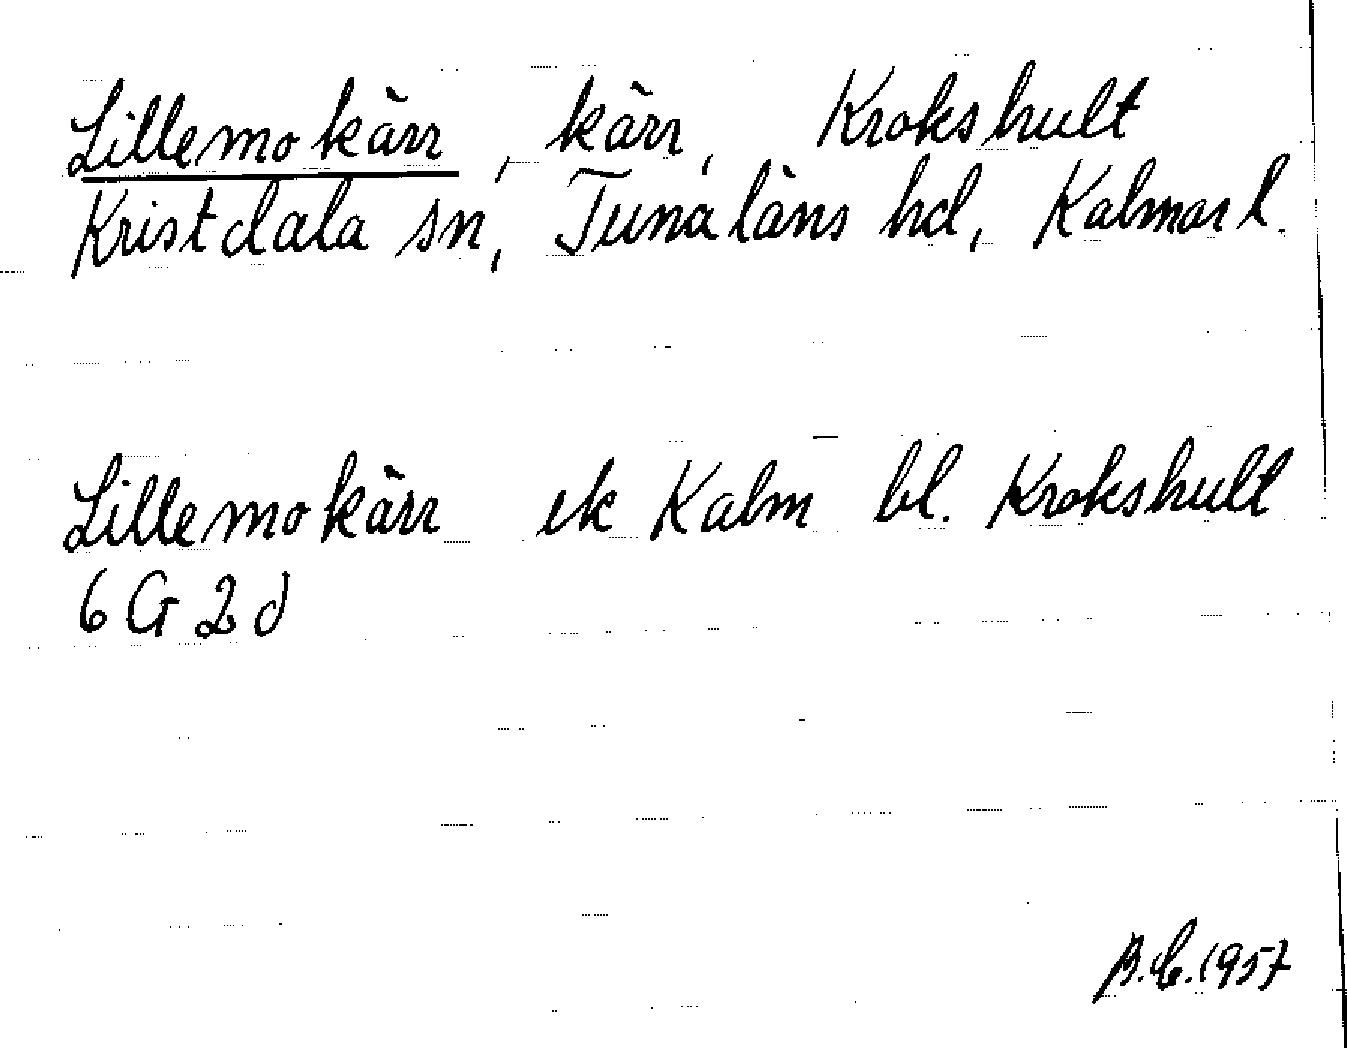 Lillemokärr, kärr, Krokshult
Kristdala sn, Tunaläns hd, Kalmar l.
Lillemokärr ek Kalm bl. Krokshult
6 G 2 d
B.C. 1957